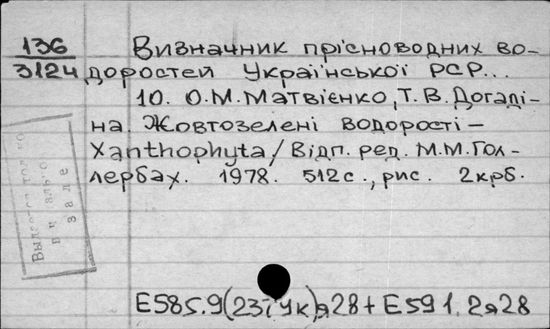 136
3124
Визначник прісноводних во-
доростей Української РСР...
10. О.М. Матвієнко, Т.В. Догаді-
на. Жовтозелені водорості –
Xanthophyta / Відп. ред. М.М. Гол-
лербах. 1978. 512с., рис. 2крб.
зале
E585.9(23Ук)я28 + E591.2я28